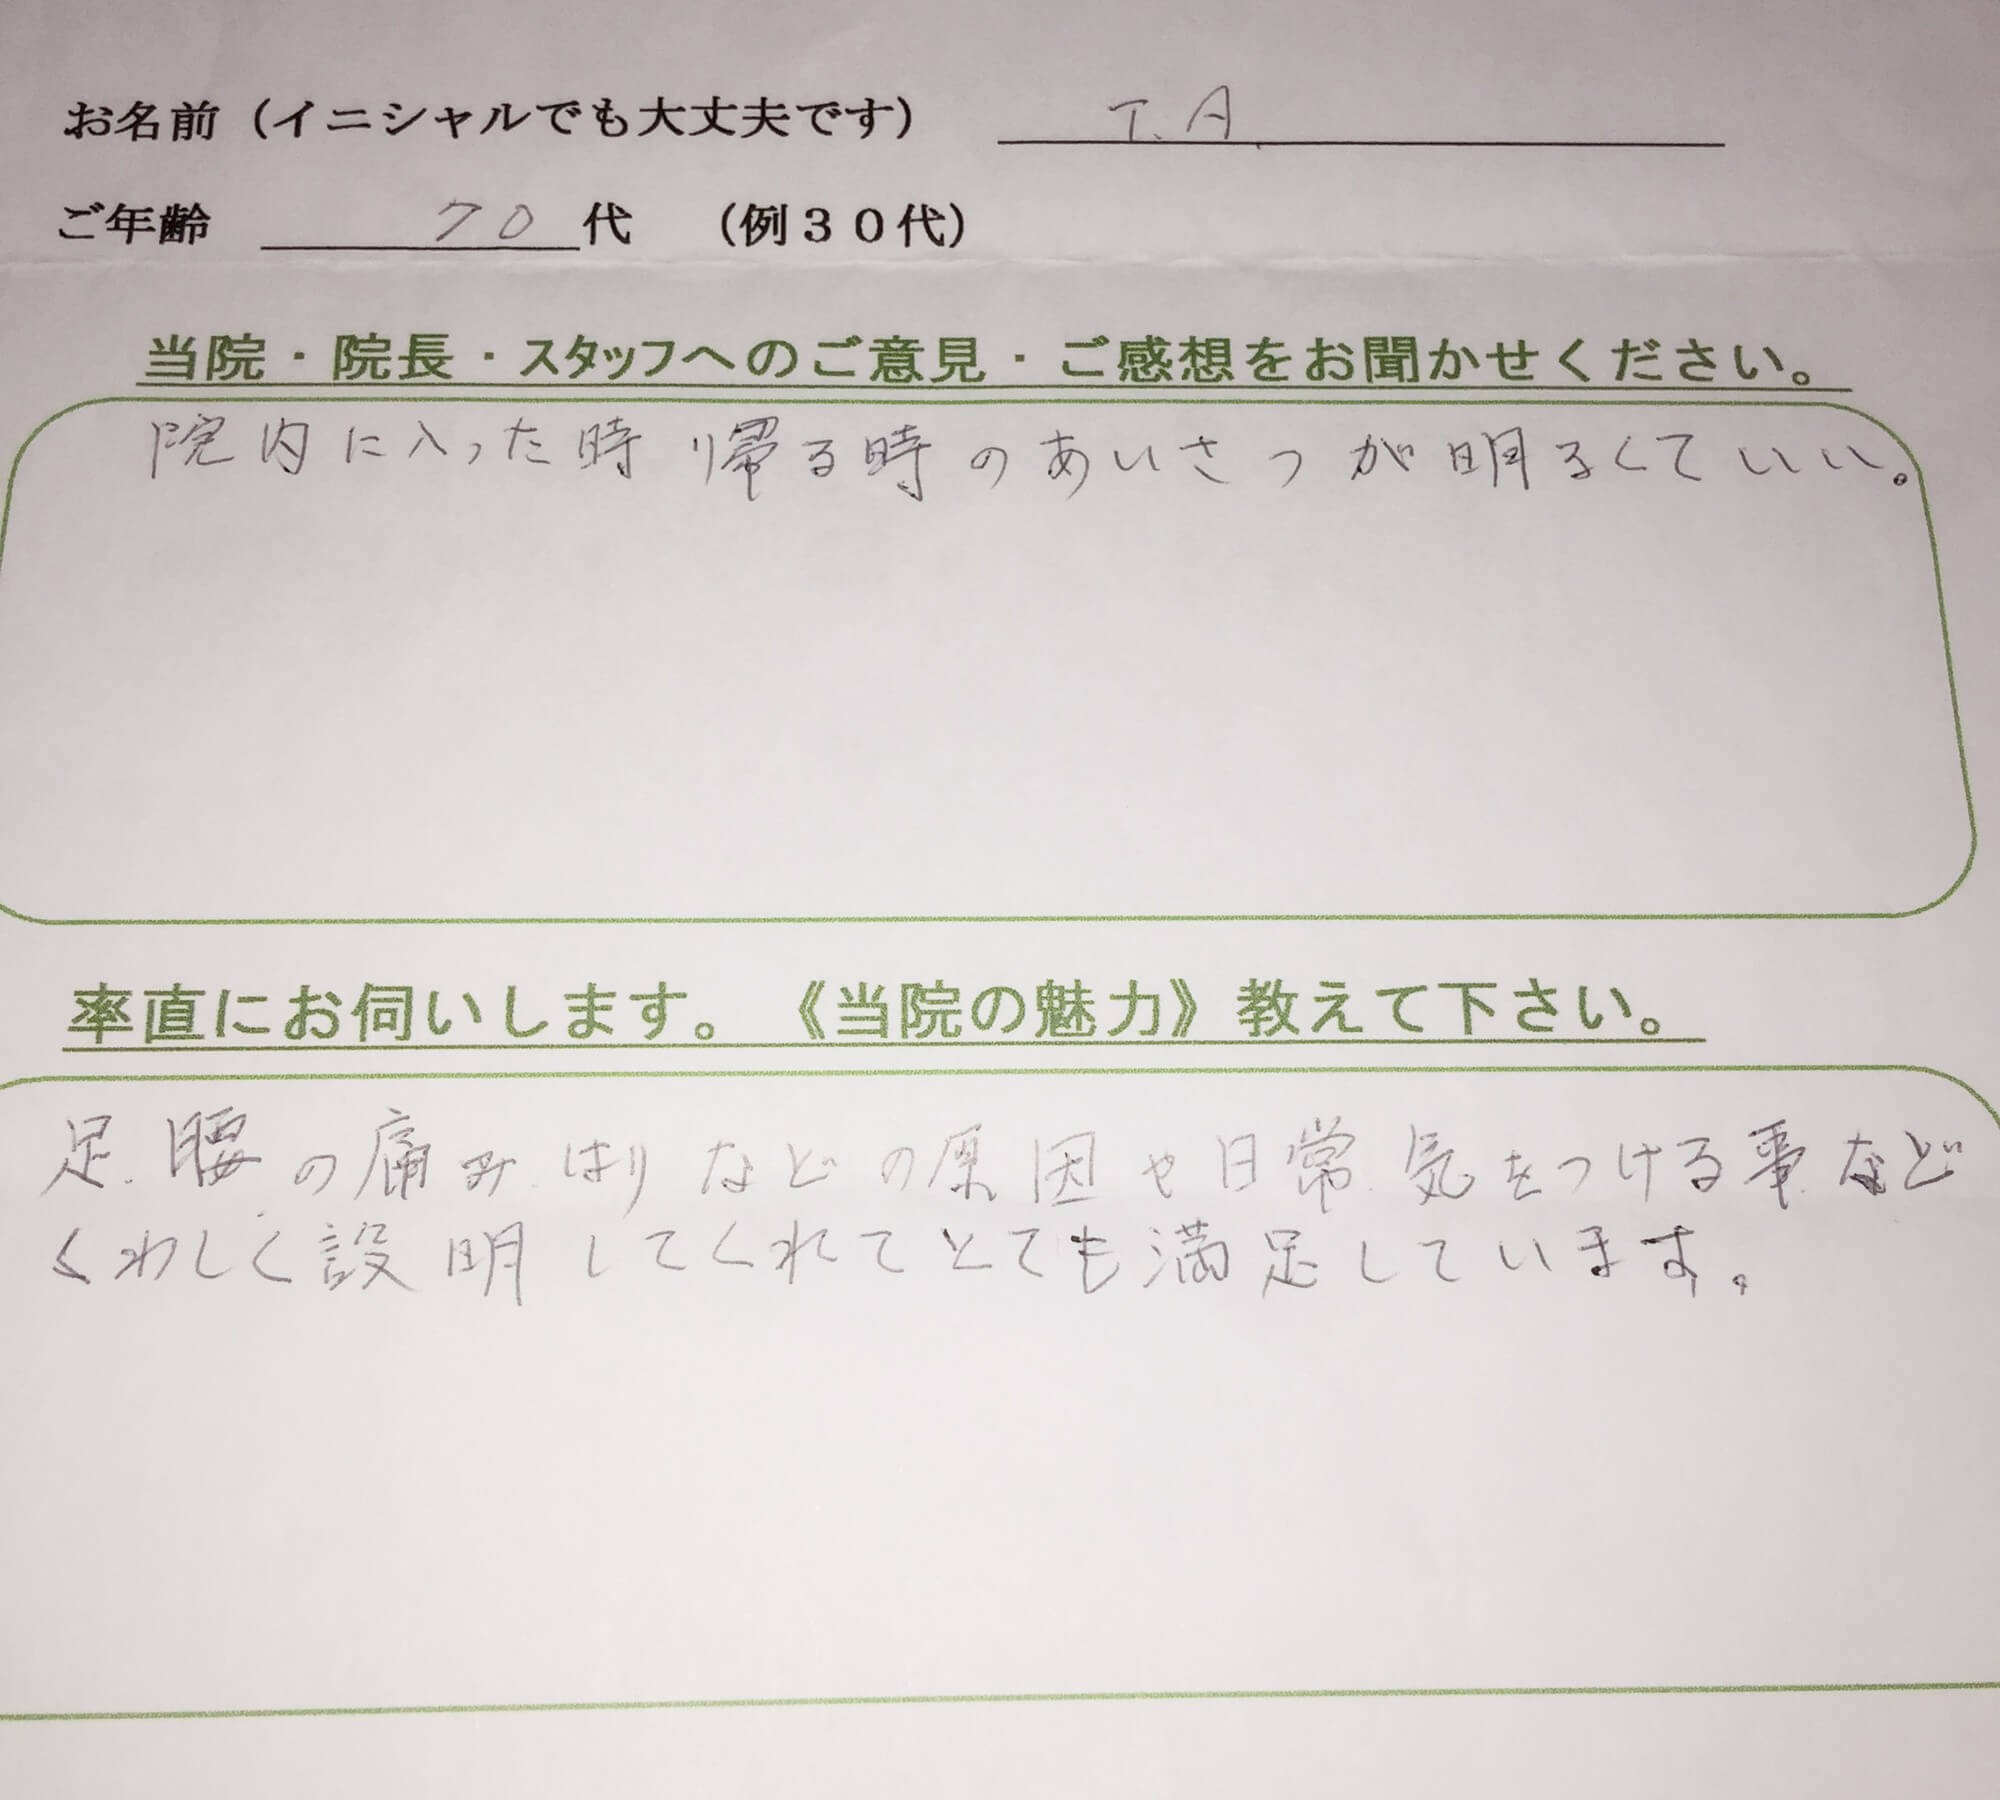 お名前（イニシャルでも大丈夫です） T.A
ご年齢 70代 （例３０代）
当院・院長・スタッフへのご意見・ご感想をお聞かせください。
院内に入った時帰る時のあいさつが明るくていい。
率直にお伺いします。《当院の魅力》教えて下さい。
足.腰の痛み.はりなどの原因や日常.気をつける事.など
くわしく設明してくれてとても満足しています。